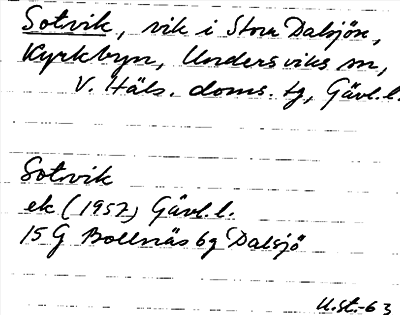 Sotvik, vik i Stora Dalsjön,
Kyrkbyn, Undersviks sn,
V. Häls. doms. tg, Gävl.l.
Sotvik
ek (1957) Gävl.l.
15 G Bollnäs 6g Dalsjö
U.st.-63